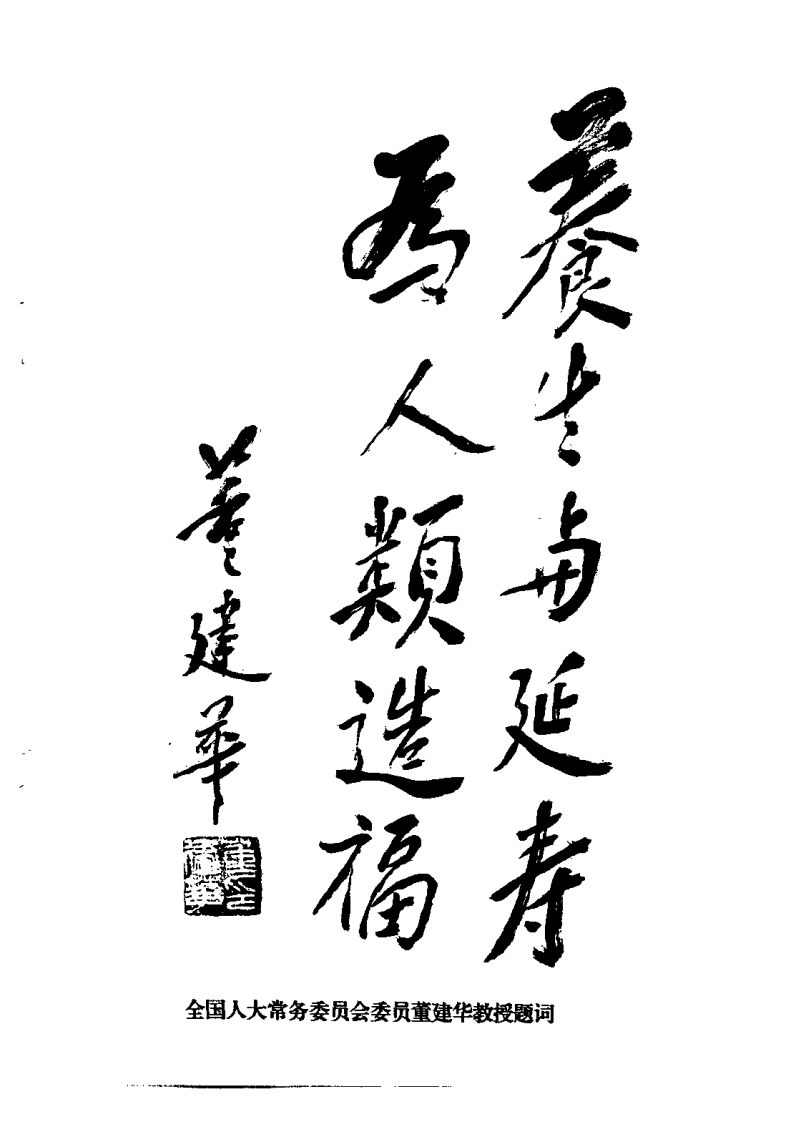 養生与延寿
为人類造福
董建華
全国人大常务委员会委员董建华教授题词